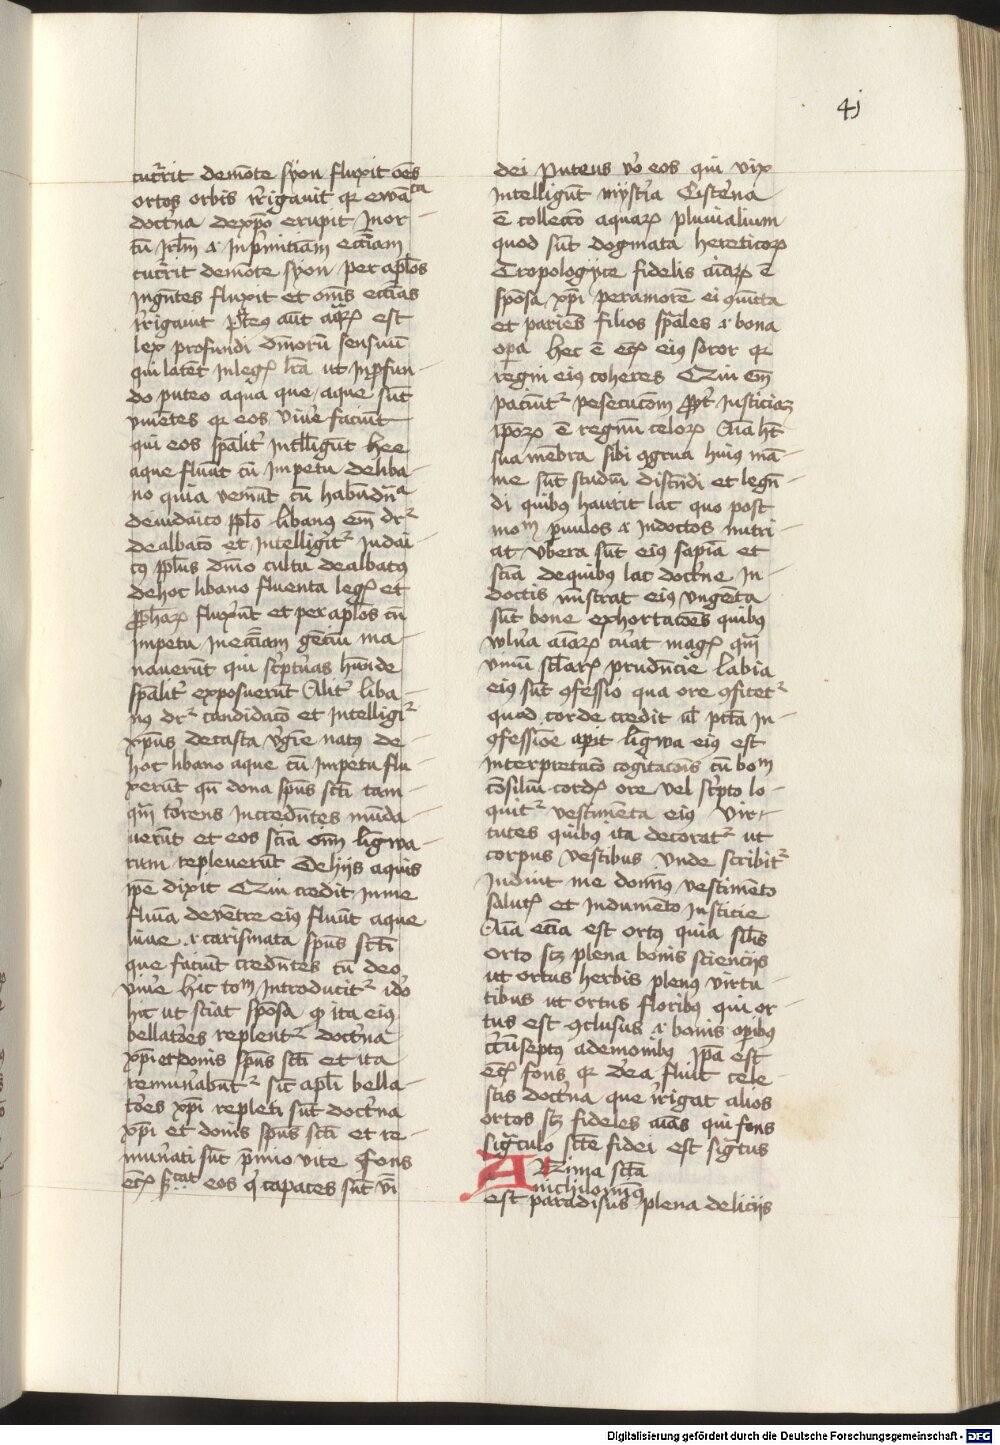 41
cucurrit demōte syon fluxit oēs
ortos orbis irrigavit qr ewāca
doctrīa dexpō erupit Inor
tū Jrlm̄ ⁊ inpͥmitiām eccīam
cucurrit demōte syon per aplōs
Ingn̄tes fluxit et om̄s eccīas
irrigavit pͥte9 aūt aqͣꝝ est
lex profundi dīnorū sensuū
qui latēt inlegꝭ lr̄a ut inpfun
do puteo aqua que aque sūt
viuētes qr eos viuē faciūt
qui eos spālit̄ intelligūt hee
aque fluūt cū impetu deliba
no quia veniūt cū habundn̄ͣ
deiudaico pplō libanus em̄ dr̄ͬ
dealbacō et intelligitͬ iudai
c9 pplūs dīno cultu dealbat9
dehoc libano fluenta legꝭ et
ꝓphāꝝ fluxūt et per aplōs cū
impetu ineccīam gēciū ma
nauerūt qui scͥpturas hūnde
spālit̄ exposuerūt Alit̄ liba
n9 dr̄ͬ candidacō et intelligiͬ
xpūs decasta vgīe nat9 de
hoc libano aque cū impetu flu
xerūt qn̄ dona spūs scī tam
qͣm torrens incredn̄tes mūda
uerūt et eos scīa om̄ līgwa
rum repleuerūt Dehijs aquis
ip̄e dixit Qui credit in me
fluīa deuētre ei9 fluūt aque
viue ⁊ carismata spūs scī
que faciūt credn̄tes cū deo
viuē hic tom̄ introducitͬ idō
hic ut sciat spōsa ꝙ ita ei9
bellatōes replentͬ doctīna
xpī et donis spūs scī et ita
remūabuntͬ sīt aplī bella
tōes xpī repleti sūt doctīna
xpī et donis spūs scī et re
mūati sūt pͥmio vite Fons
eccꝭ sͬcat eos qͥ capaces sūt vī
dei Puteus vō eos qui vix
intelligūt mystīa Cistena
ē collectō aquaꝝ pluuialium
quod sūt dogmata hereticoꝝ
Tropologyce fidelis aīaꝝ ē
spōsa xpī peramorē ei qͥuīcta
et pariēs filios spūales ⁊ bona
opa hec ē eccꝭ ei9 soror qr
regni ei9 coheres Qui em̄
paciūtͬ psecucōm ꝓpt̄ iusticiaꝫ
ipoꝝ ē regnū celoꝝ Aīa ht̄
sua mēbra sibi ꝯgrua hui9 mā
me sūt studiū discn̄di et legn̄
di quibus haurit lac quo post
modm̄ puulos ⁊ indoctos nutri
at vbera sūt ei9 sapīa et
scīa dequib9 lac doctīne in
doctis mīstrat ei9 vngēta
sūt bone exhortacōes quib9
wlnīa aīaꝝ curat magꝭ qͣm
vnūt sclāꝝ prudencie Labia
ei9 sūt ꝯfessio qua ore ꝯfitetͬ
quod corde credit ul̄ pctā in
ꝯfessiōe apit līgwa ei9 est
interpretacō cogitacōis cū bom̄
cōsiliū cordꝭ ore vel scͥpto lo
quitͬ vestimēta ei9 vir
tutes quib9 ita decoratͬ ut
corpus vestibus Unde scribitͬ
Induit me domīus vestimēto
salutꝭ et indumēto iusticie
Aīa ecīa est ort9 quia silīs
orto scꝫ plena bonis sciencijs
ut ortus herbis plen9 virtu
tibus ut ortus florib9 qui or
tus est ꝯclusus ⁊ bonis opib9
cͥcūsept9 ademonib9 ip̄a est
ecīa fons qr dēa fluit cele
stis doctīna que irrigat alios
ortos scꝫ fideles aīas qui fons
signaculo scē fidei est sigtus
ANima scā
nichilomin9
est paradisus plena delicijs
Digitalisierung gefördert durch die Deutsche Forschungsgemeinschaft - DFG